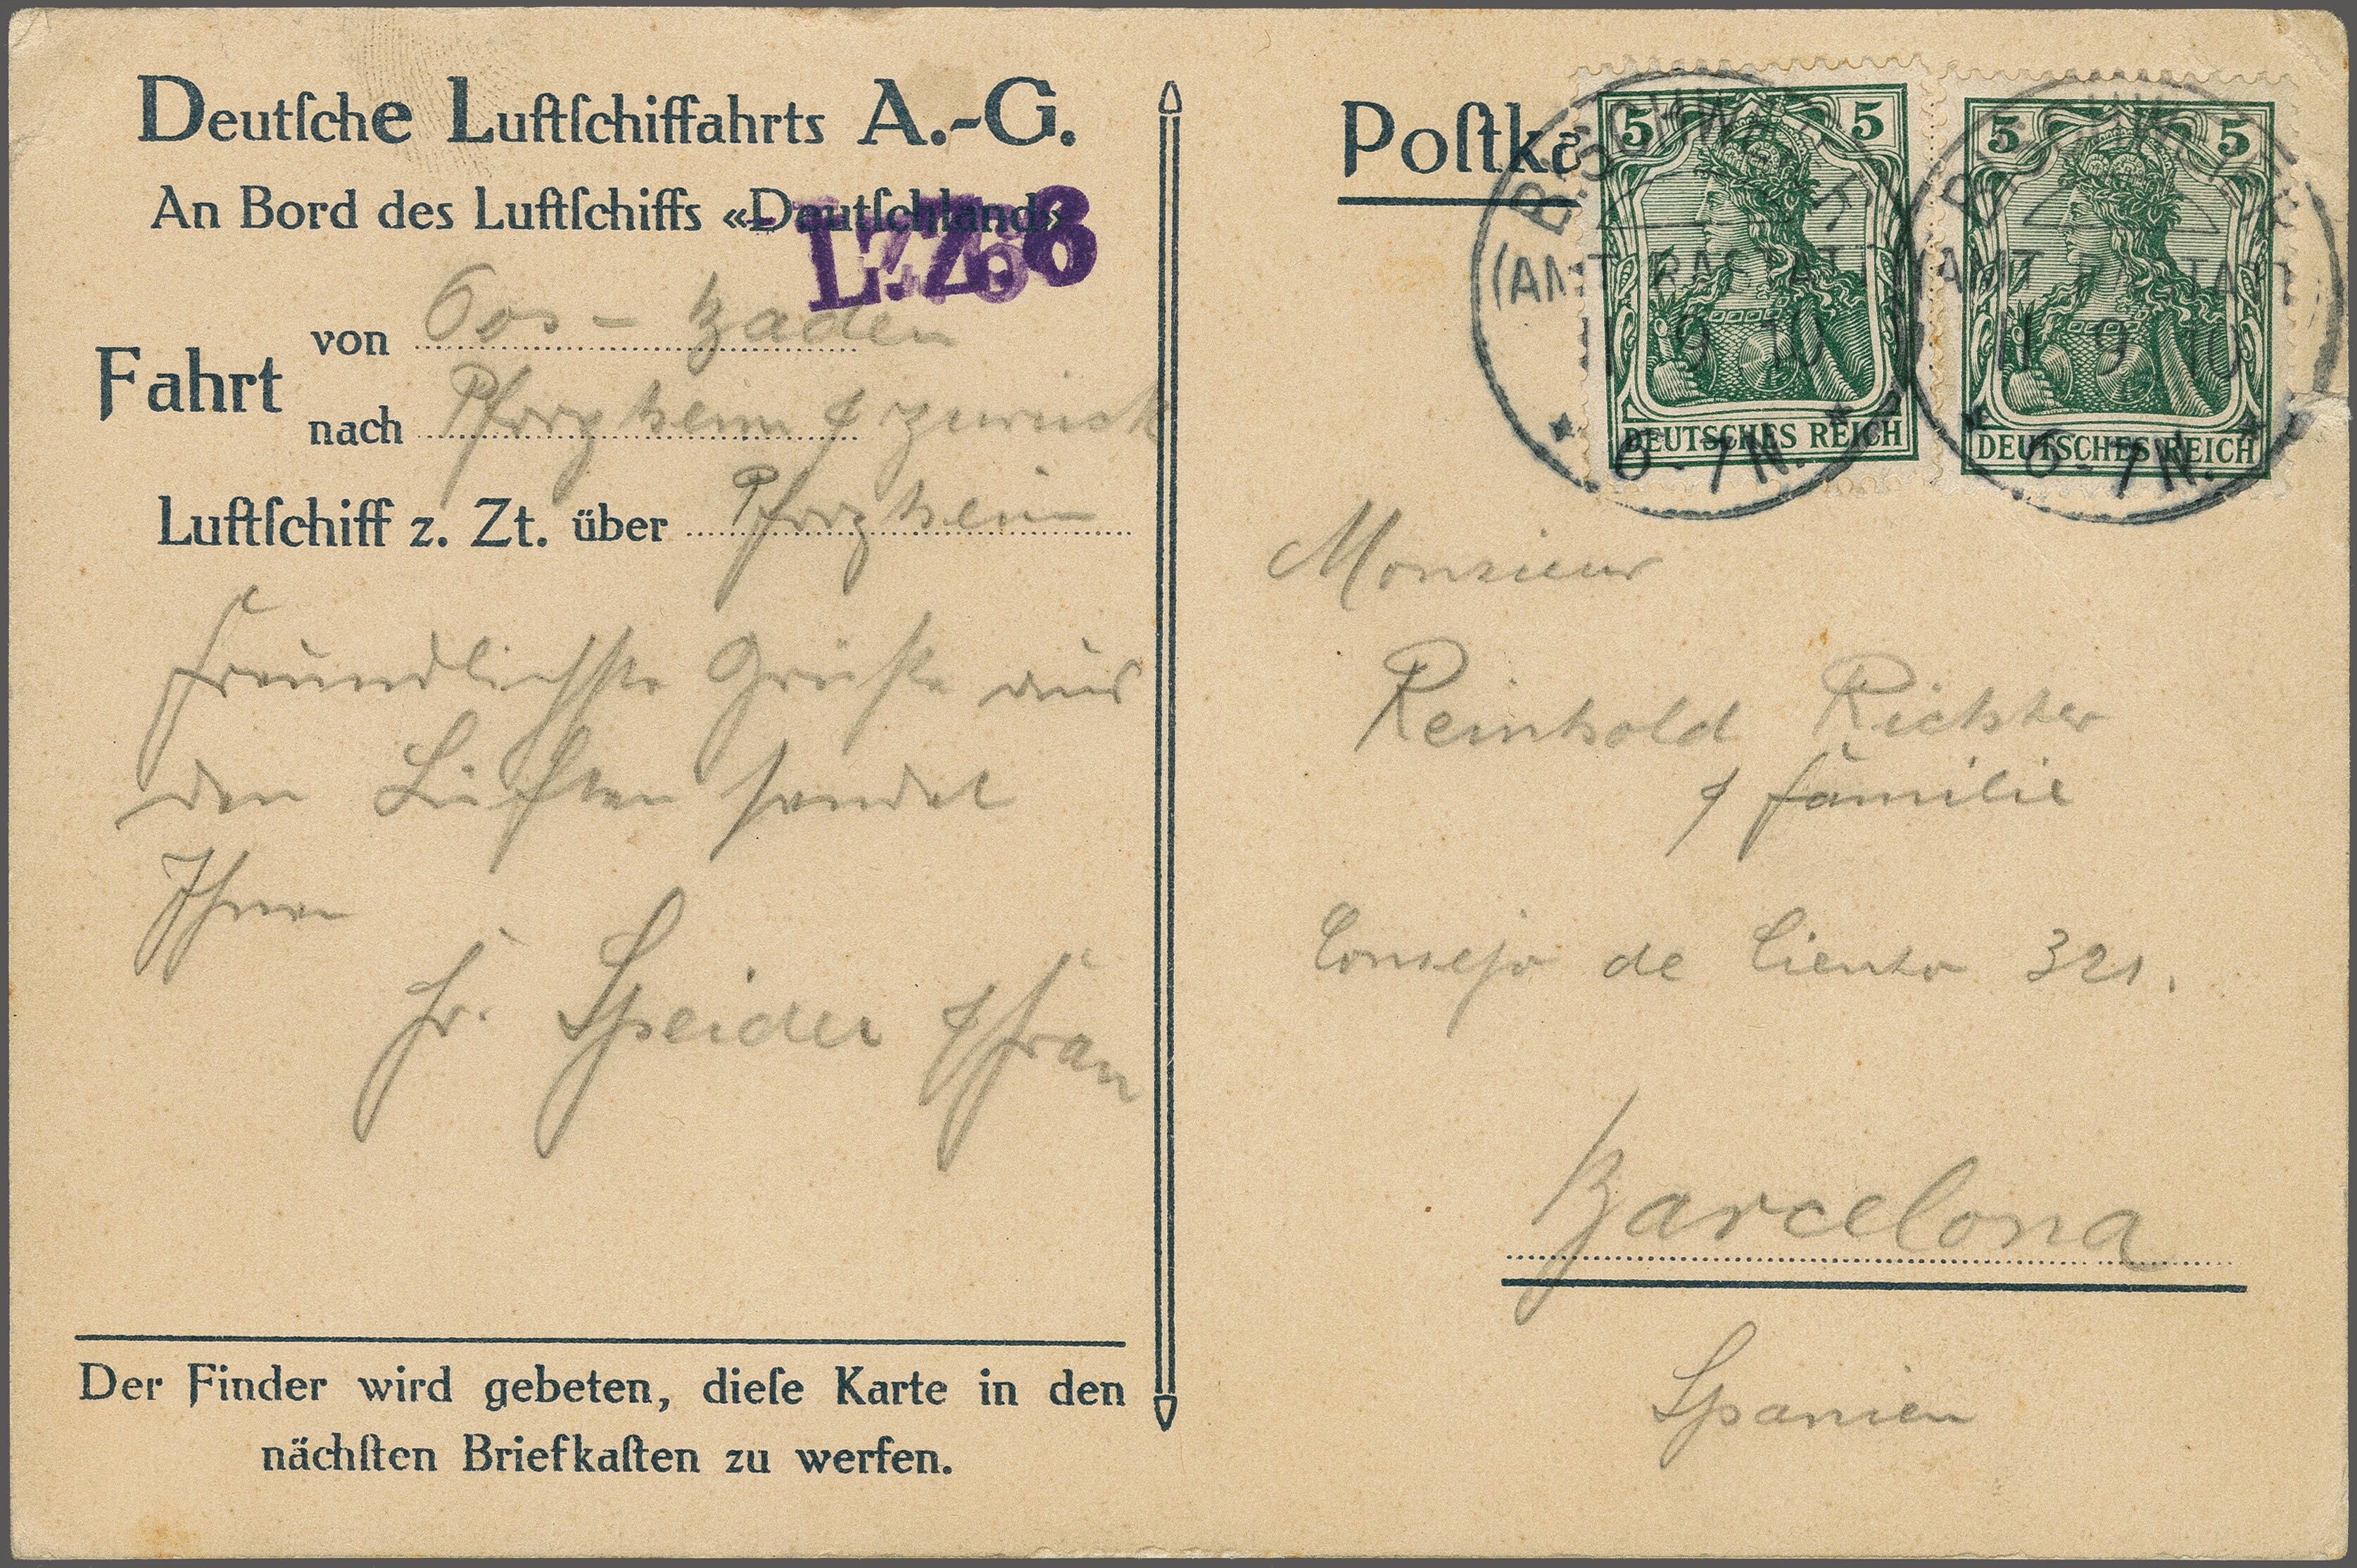 Deutſche Luftſchiffahrts A.-G.
An Bord des Luftſchiffs «Deutſchland»
L.Z.6
Fahrt von Oos - Baden
nach Pforzheim & zurück
Luftſchiff z. Zt. über Pforzheim
Freundlichste Grüße aus
den Lüften sendet
Ihnen
Fr. Speider & Frau
Der Finder wird gebeten, dieſe Karte in den
nächſten Briefkaſten zu werfen.
Poſtka
5 5
DEUTSCHES REICH
5 5
DEUTSCHES REICH
(AMT RASTATT)
11 9 10
6-7N.
(AMT RASTATT)
11 9 10
6-7N.
Monsieur
Reinhold Richter
& Familie
Consejo de Ciento 321.
Barcelona
Spanien